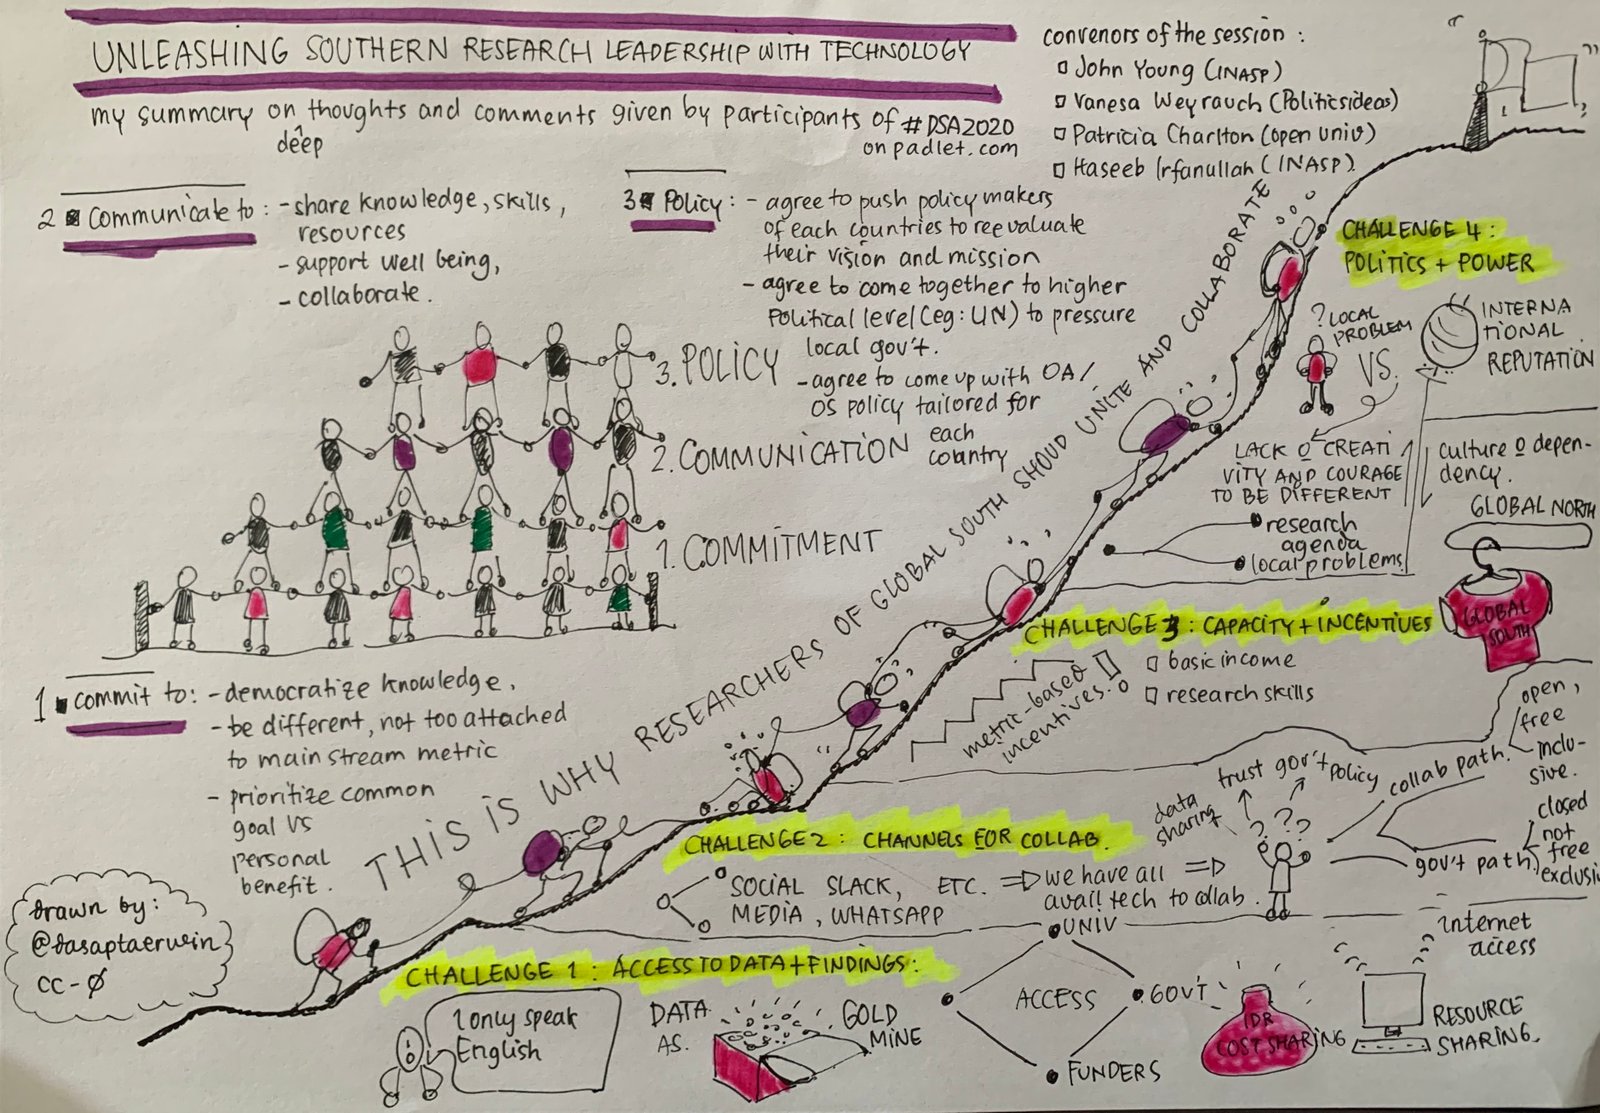 UNLEASHING SOUTHERN RESEARCH LEADERSHIP WITH TECHNOLOGY
my summary on thoughts and comments given by participants of #DSA2020
deep
on padlet.com
convenors of the session :
John Young (INASP)
Vanesa Weyrauch (Politicsideas)
Patricia Charlton (open univ)
Haseeb Irfanullah (INASP)
2 communicate to : - share knowledge, skills,
resources
- support well being,
- collaborate.
3 Policy : - agree to push policy makers
of each countries to reevaluate
their vision and mission
- agree to come together to higher
Political level (eg: UN) to pressure
local gov't.
- agree to come up with OA/
OS policy tailored for
each
country
3. POLICY
2. COMMUNICATION
1. COMMITMENT
1 commit to: - democratize knowledge,
- be different, not too attached
to main stream metric
- prioritize common
goal vs
personal
benefit.
THIS IS WHY RESEARCHERS OF GLOBAL SOUTH SHOUD UNITE AND COLLABORATE
drawn by:
@dasaptaerwin
cc-0
CHALLENGE 4 :
POLITICS + POWER
? LOCAL
PROBLEM
VS.
INTERNA
TIONAL
REPUTATION
LACK O CREATI
VITY AND COURAGE
TO BE DIFFERENT
culture o depen-
dency.
research
agenda
local problems
GLOBAL NORTH
GLOBAL
SOUTH
CHALLENGE 3 : CAPACITY + INCENTIVES
metric-based
incentives
basic income
research skills
CHALLENGE 2 : CHANNELS FOR COLLAB.
SOCIAL SLACK, ETC. ⇒ we have all ⇒
MEDIA, WHATSAPP avail tech to collab.
data
sharing
trust gov't policy
? ? ?
collab path.
open,
free
inclu-
sive.
gov't path.
closed
not
free
exclusi
CHALLENGE 1 : ACCESS TO DATA + FINDINGS :
I only speak
English
DATA
AS.
GOLD
MINE
UNIV
ACCESS
GOV'T
FUNDERS
IDR
COST SHARING
internet
access
RESOURCE
SHARING.